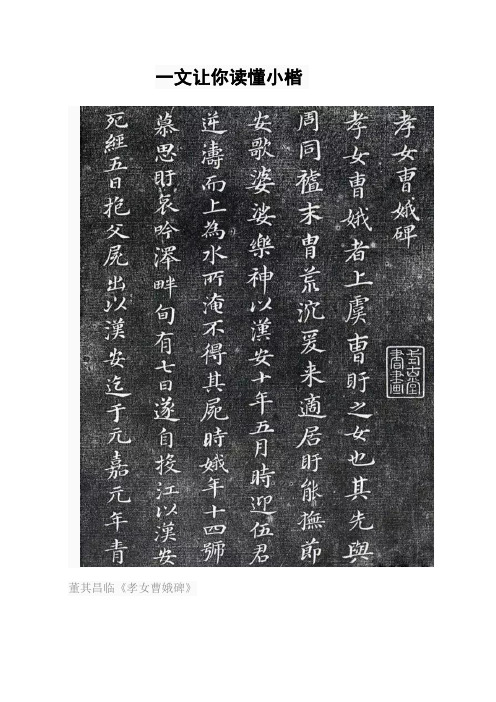 一文让你读懂小楷
孝女曹娥碑
孝女曹娥者上虞曹盱之女也其先與
周同末胄荒沉爰来適居盱能撫節
安歌婆娑樂神以漢安十年五月時迎伍君
逆濤而上為水所淹不得其屍時娥年十四號
慕思盱哀吟澤畔旬有七日遂自投江以漢安
死經五日抱父屍出以漢安迄于元嘉元年青
書畫
董其昌临《孝女曹娥碑》